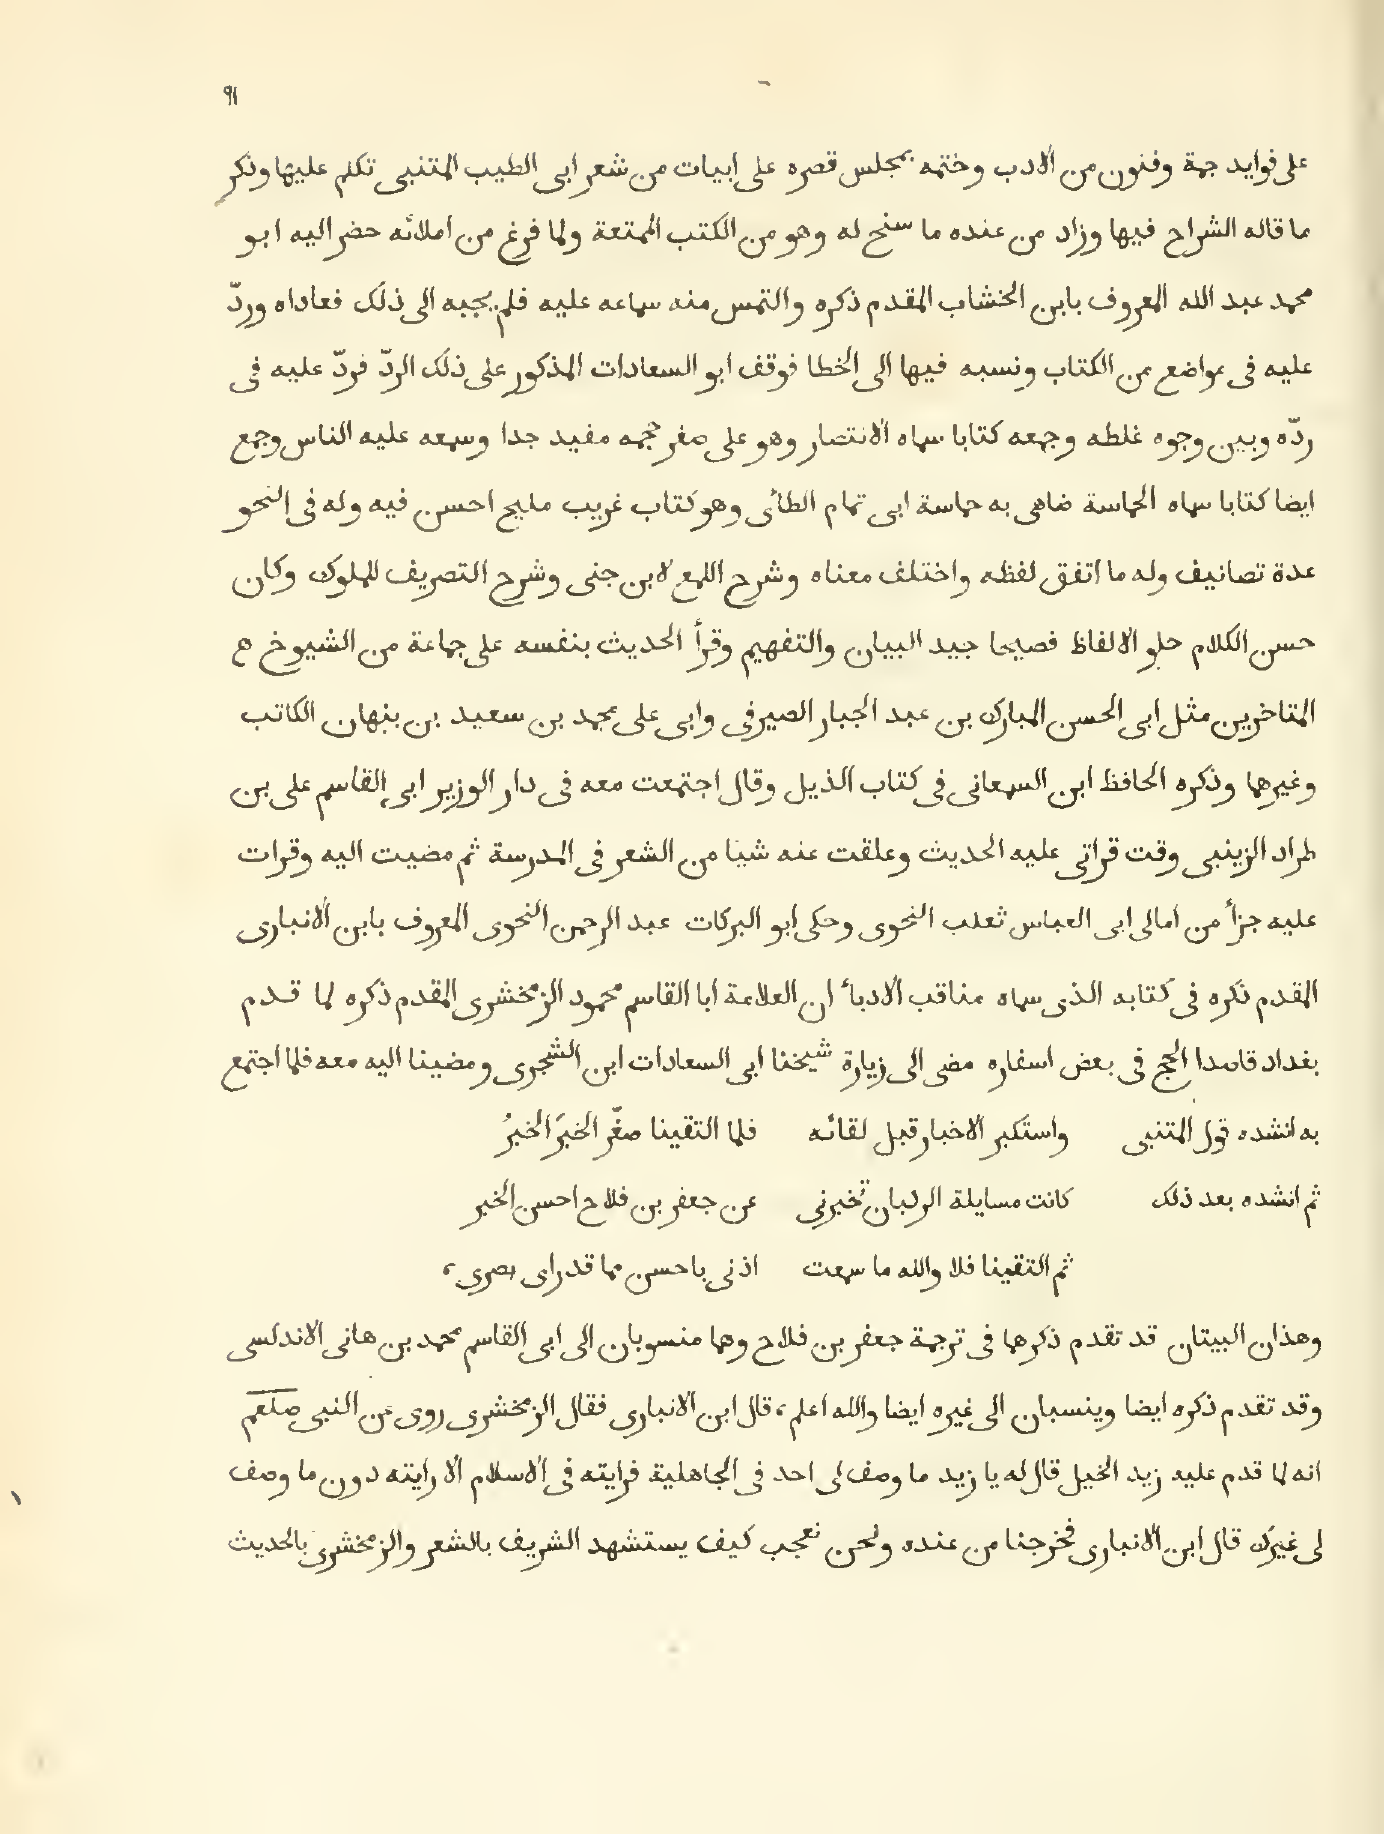 ٩١
على فوايد جمة وفنون من الادب وختمه بمجلس قصره على ابيات من شعر ابى الطيب المتنبى تكلم عليها وذكر
ما قاله الشراح فيها وزاد من عنده ما سنح له وهو من الكتب الممتعة ولما فرغ من املائه حضر اليه ابو
محمد عبد الله المعروف بابن الخشاب المقدم ذكره والتمس منه سماعه عليه فلم يجبه الى ذلك فعاداه وردّ
عليه فى مواضع من الكتاب ونسبه فيها الى الخطا فوقف ابو السعادات المذكور على ذلك الردّ فردّ عليه فى
ردّه وبين وجوه غلطه وجمعه كتابا سماه الانتصار وهو على صغر حجمه مفيد جدا وسمعه عليه الناس وجمع
ايضا كتابا سماه الحماسة ضاهى به حماسة ابى تمام الطائى وهو كتاب غريب مليح احسن فيه وله فى النحو
عدة تصانيف وله ما اتفق لفظه واختلف معناه وشرح اللمع لابن جنى وشرح التصريف للملوك وكان
حسن الكلام حلو الالفاظ فصيحا جيد البيان والتفهيم وقرأ الحديث بنفسه على جماعة من الشيوخ
المتاخرين مثل ابى الحسن المبارك بن عبد الجبار الصيرفى وابى على محمد بن سعيد بن بنهان الكاتب
وغيرهما وذكره الحافظ ابن السمعانى فى كتاب الذيل وقال اجتمعت معه فى دار الوزير ابى القاسم على بن
طراد الزينبى وقت قراتى عليه الحديث وعلقت عنه شيا من الشعر فى المدرسة ثم مضيت اليه وقرات
عليه جزأ من امالى ابى العباس ثعلب النحوى وحكى ابو البركات عبد الرحمن النحوى المعروف بابن الانبارى
المقدم ذكره فى كتابه الذى سماه مناقب الادباء ان العلامة ابا القاسم محمود الزمخشرى المقدم ذكره لما قدم
بغداد قاصدا الحج فى بعض اسفاره مضى الى زيارة شيخنا ابى السعادات ابن الشجرى ومضينا اليه معه فلما اجتمع
به انشده قول المتنبى واستكبر الاخبار قبل لقائه فلما التقينا صغّر الخبرَ الخبرُ
ثم انشده بعد ذلك كانت مسايلة الركبان تخبرنى عن جعفر بن فلاح احسن الخبر
ثم التقينا فلا والله ما سمعت اذنى باحسن مما قد راى بصرى،
وهذان البيتان قد تقدم ذكرها فى ترجمة جعفر بن فلاح وهما منسوبان الى ابى القاسم محمد بن هانى الاندلسى
وقد تقدم ذكره ايضا وينسبان الى غيره ايضا والله اعلم، قال ابن الانبارى فقال الزمخشرى روى عن النبى صلعم
انه لما قدم عليه زيد الخيل قال له يا زيد ما وصف لى احد فى الجاهلية فرايته فى الاسلام الا رايته دون ما وصف
لى غيرك قال ابن الانبارى فخرجنا من عنده ونحن نعجب كيف يستشهد الشريف بالشعر والزمخشرى بالحديث